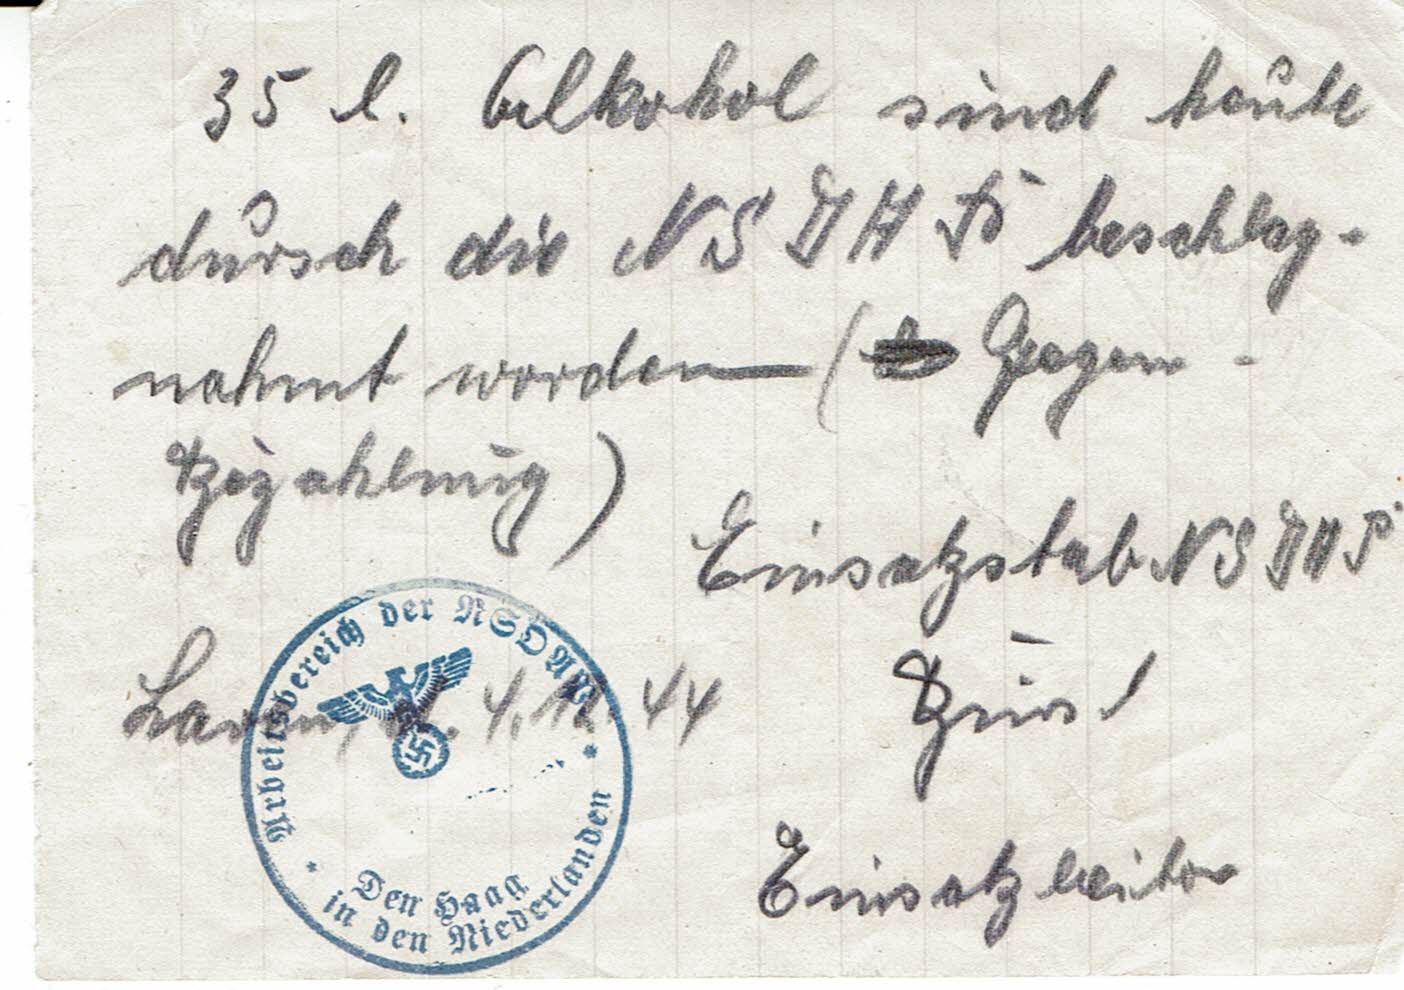 35 l. Alkohol sind heute
durch die NSDAP beschlag-
nahmt worden (Gegen-
Bezahlung)
Einsatzstab NSDAP
Laren, 4.12.44
Einsatzleiter
Arbeitsbereich der NSDAP
in den Niederlanden
Den Haag